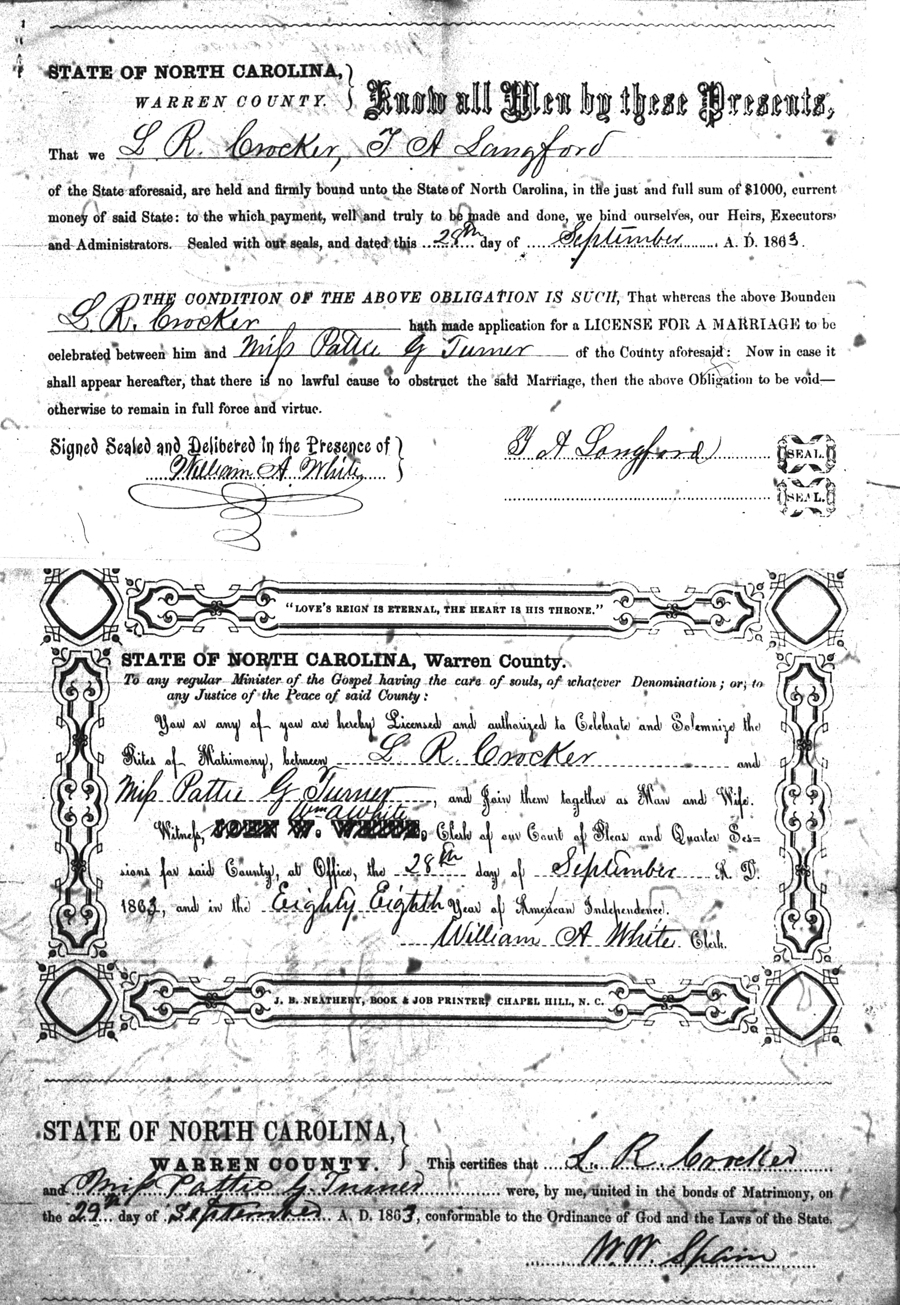 STATE OF NORTH CAROLINA,
WARREN COUNTY.
Know all Men by these Presents,
That we L R. Crocker, T A Langford
of the State aforesaid, are held and firmly bound unto the State of North Carolina, in the just and full sum of $1000, current
money of said State: to the which payment, well and truly to be made and done, we bind ourselves, our Heirs, Executors
and Administrators. Sealed with our seals, and dated this 28th day of September A. D. 1863.
THE CONDITION OF THE ABOVE OBLIGATION IS SUCH, That whereas the above Bounden
L R. Crocker hath made application for a LICENSE FOR A MARRIAGE to be
celebrated between him and Miss Pattie G Turner of the County aforesaid: Now in case it
shall appear hereafter, that there is no lawful cause to obstruct the said Marriage, then the above Obligation to be void—
otherwise to remain in full force and virtue.
Signed Sealed and Delivered in the Presence of
William A. White
T A Langford SEAL.
SEAL.
"LOVE'S REIGN IS ETERNAL, THE HEART IS HIS THRONE."
STATE OF NORTH CAROLINA, Warren County.
To any regular Minister of the Gospel having the care of souls, of whatever Denomination; or, to
any Justice of the Peace of said County:
You or any of you are hereby Licensed and authorized to Celebrate and Solemnize the
Rites of Matrimony, between L R. Crocker and
Miss Pattie G Turner, and Join them together as Man and Wife.
Wm A White
Witness, JOHN W. WHITE, Clerk of our Court of Pleas and Quarter Ses=
sions for said County, at Office, the 28th day of September A. D.
1863, and in the Eighty Eighth Year of American Independence.
William A White Clerk.
J. B. NEATHERY, BOOK & JOB PRINTER, CHAPEL HILL, N. C.
STATE OF NORTH CAROLINA,
WARREN COUNTY.
This certifies that L. R. Crocker
and Miss Pattie G. Turner were, by me, united in the bonds of Matrimony, on
the 29th day of September A. D. 1863, conformable to the Ordinance of God and the Laws of the State.
W. W. Spain